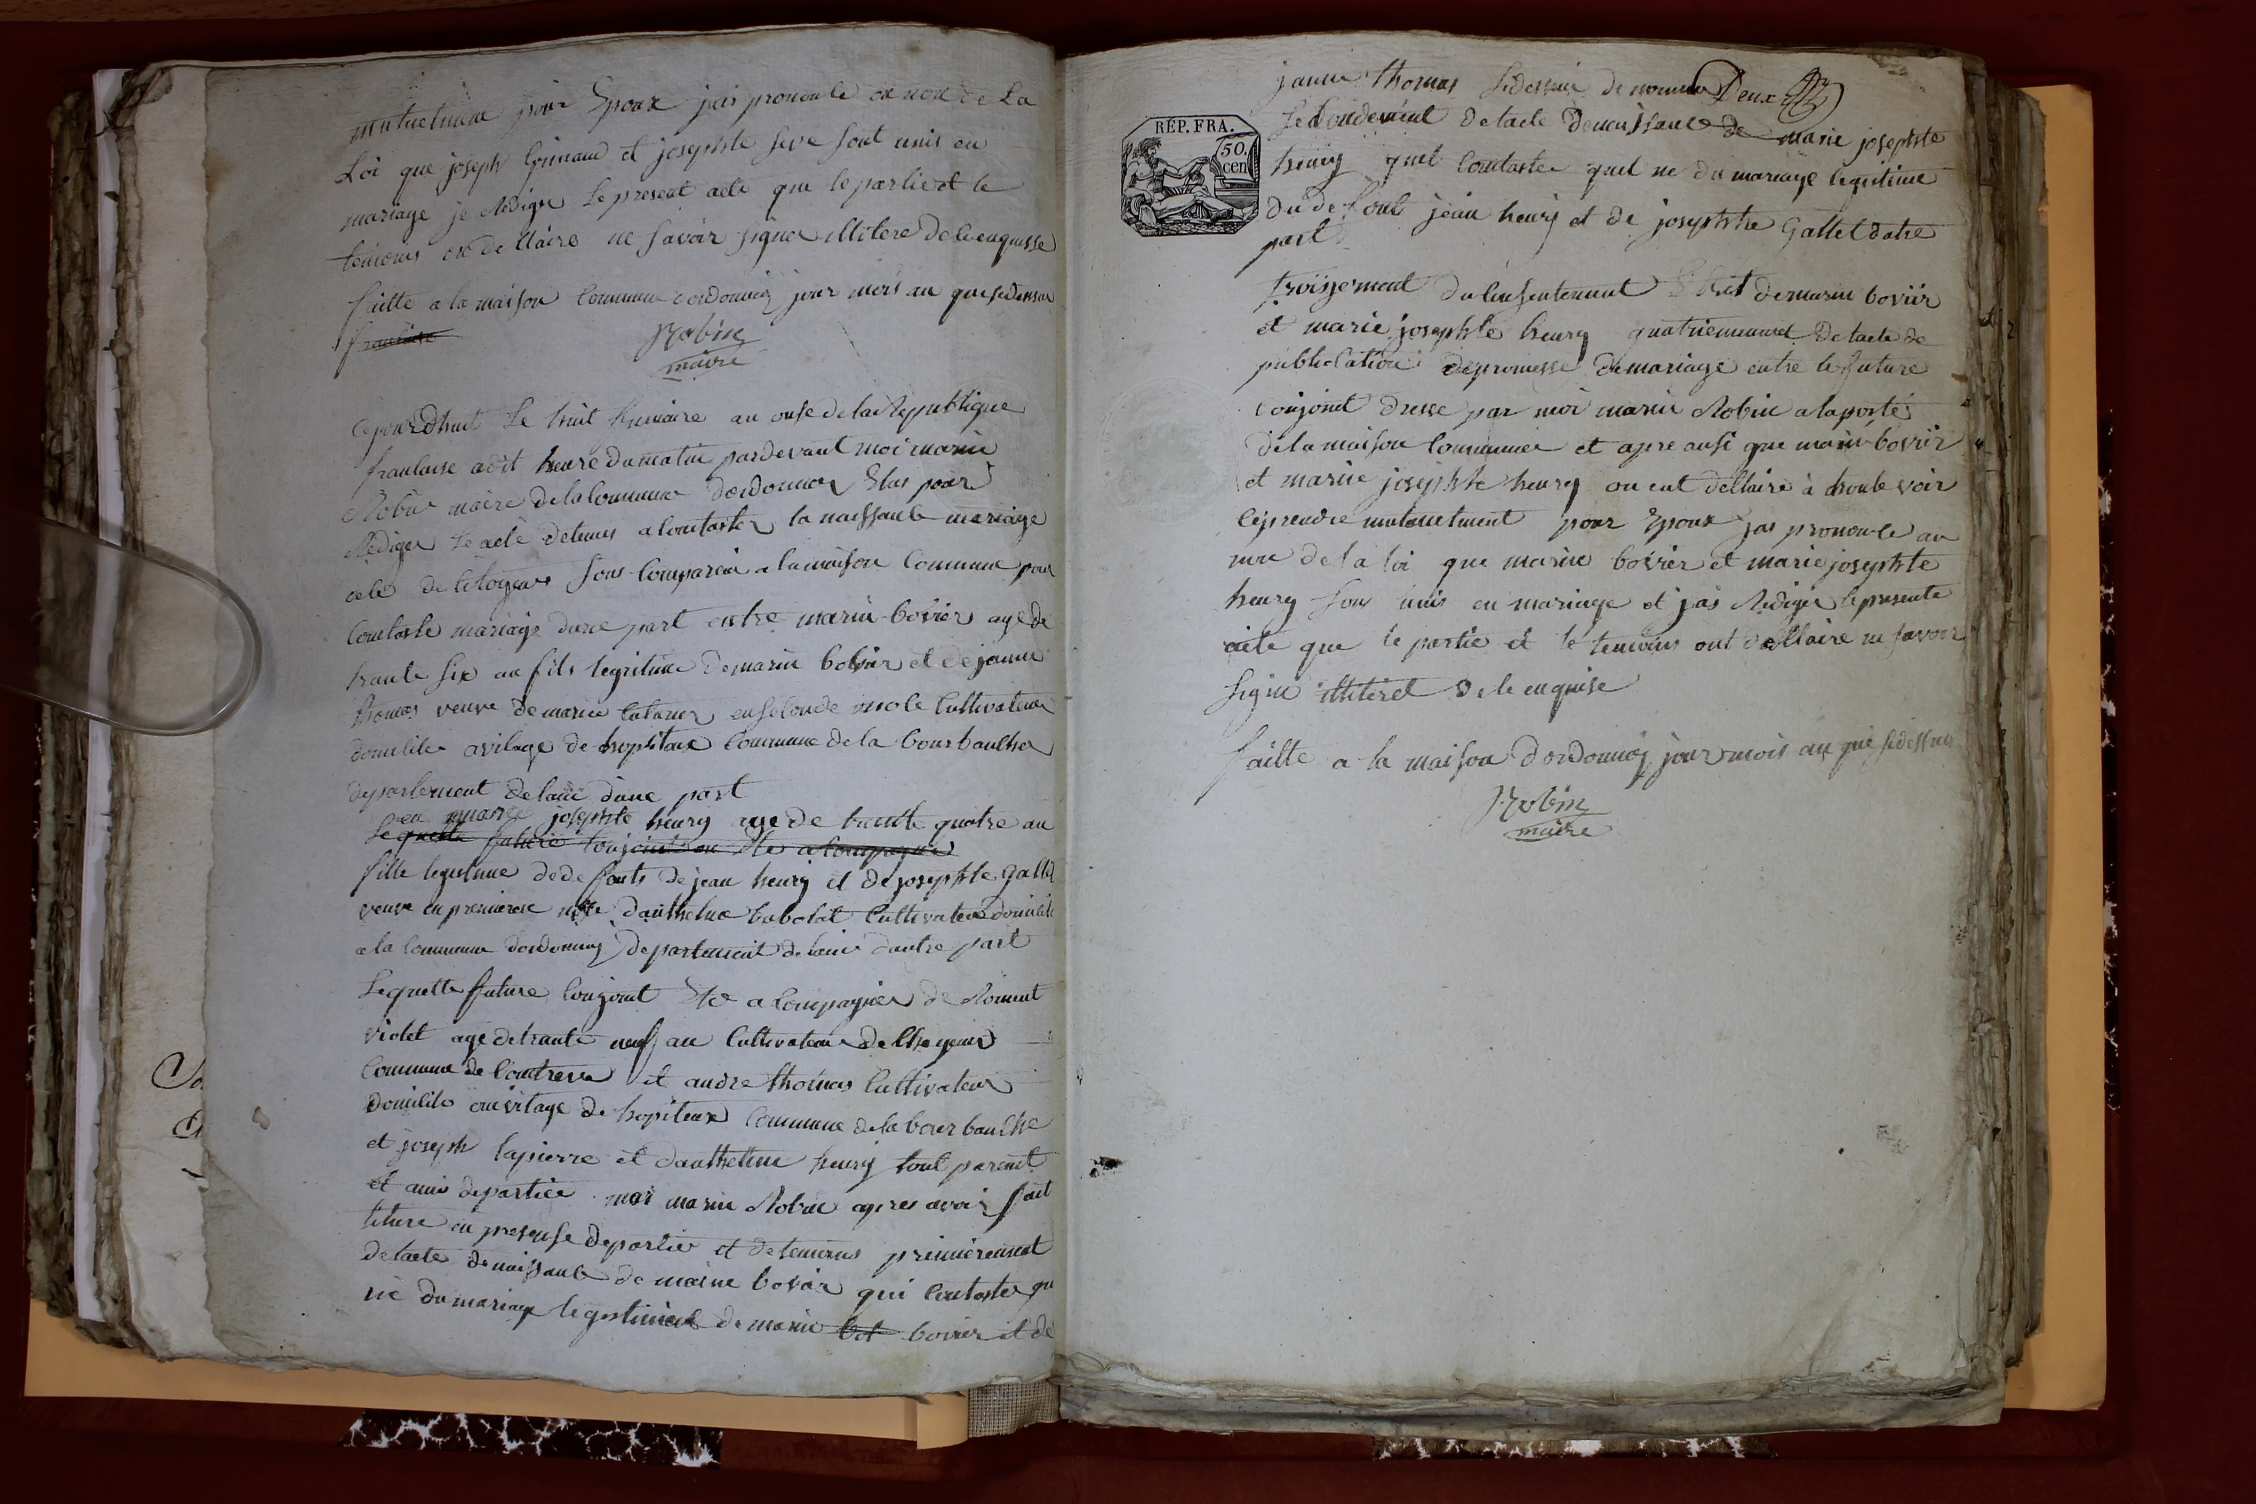 mutuelmen pour Epoux jais prononcle ou non de La
Loi que joseph et josephte seve sont unis en
mariage je Rediger Le present acte que le partie et le
temoins on dellaire ne savoir signer illitere de le enquisse
faitte a la maison Commune dordonnas jour mois an que sidessu
francaise
Robin
maire
cejourdhuit Le huit frimaire an onse de la Republique
francaise a dit heure du matin pardevant moi marin
Robin maire de la Commune dordonnas Elus pour
Rediger Le acte detinus a Contaster la naissance mariage
dece de Citoyens sont Comparue a la maison Commune pour
Contaste mariage dune part entre marin bovier age de
trante six an fils legitime de marin bovier et de janne
thomas veuve de marie en seconde noce Cultivateur
domicile avilage de hopitaux Commune de la bourbanche
departement de lain dune part
en marie josephte henry age de trante quatre an
Le quelle future Conjoint Ete aCompagnier
fille legitime de defonts de jean henry et de josephte Gallet
veuve en premiere noce danthelme babolat Cultivateur domicile
a la Commune dordonnas departement de lain dautre part
Lequelle future Conjoint Ete a Compagnier de Roment
violet age de trante neuf an Cultivateur de
Commune de Contrevo et andre thomas Cultivateur
domicile au vilage de hopiteaux Commune de la bourbanche
et joseph lapierre et danthelme henry tout parant
et amis departiee moi marin Robin apres avoir fait
liture en presense de partie et de temoins premierement
de lacte de naissance de marin bovier qui Contaste qu
ne du mariage legitime de marin bot bovier et de
janne thomas sidessus de nomme Deux
RÉP. FRA.
50.
cen
secondement de lacte de naissance de marie josephte
henry quel Contaste quel ne du mariage legitime
du defont jean henry et de josephte Gallet datre
part
troisiement du Consentement de marin bovier
et marie josephte henry quatriemement de lacte de
publication de promesse de mariage entre le future
Conjoint dresse par moi marin Robin a la porte
de la maison Commune et apre ausi que marin bovier
et marie josephte henry on eut dellaire à houte voir
ce prendre mutuelment pour Epoux jas prononce au
nom de la loi que marin bovier et marie josephte
henry sons unis en mariage et jas Rediger le presente
acte que le partie et le temoins ont dellaire ne savoir
signe illiteret de le enquise
faitte a la maison dordonnas jour mois an que sidessus
Robin
maire